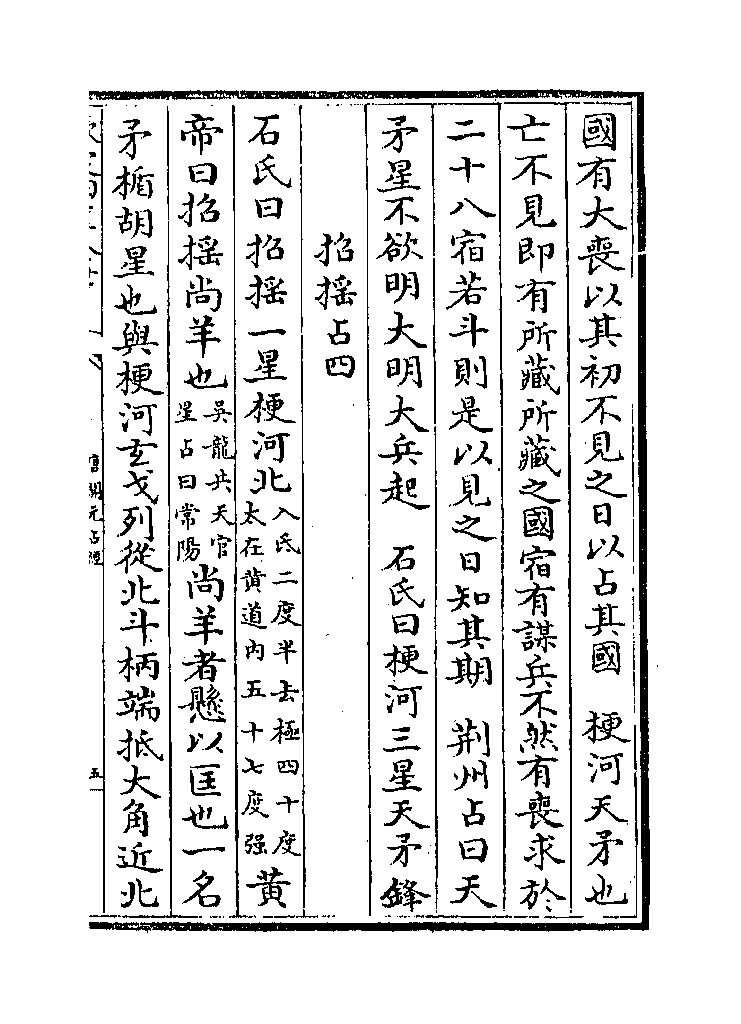 國有大喪以其初不見之日以占其國　梗河天矛也
亡不見即有所藏所藏之國宿有謀兵不然有喪求於
二十八宿若斗則是以見之日知其期　荆州占曰天
矛星不欲明大明大兵起　石氏曰梗河三星天矛鋒
招摇占四
石氏曰招摇一星梗河北入氐二度半去極四十度太在黄道内五十七度强黄
帝曰招摇尚羊也吳龍共天官星占曰常陽尚羊者懸以匡也一名
矛楯胡星也與梗河玄戈列從北斗柄端抵大角近北
唐開元占經
五